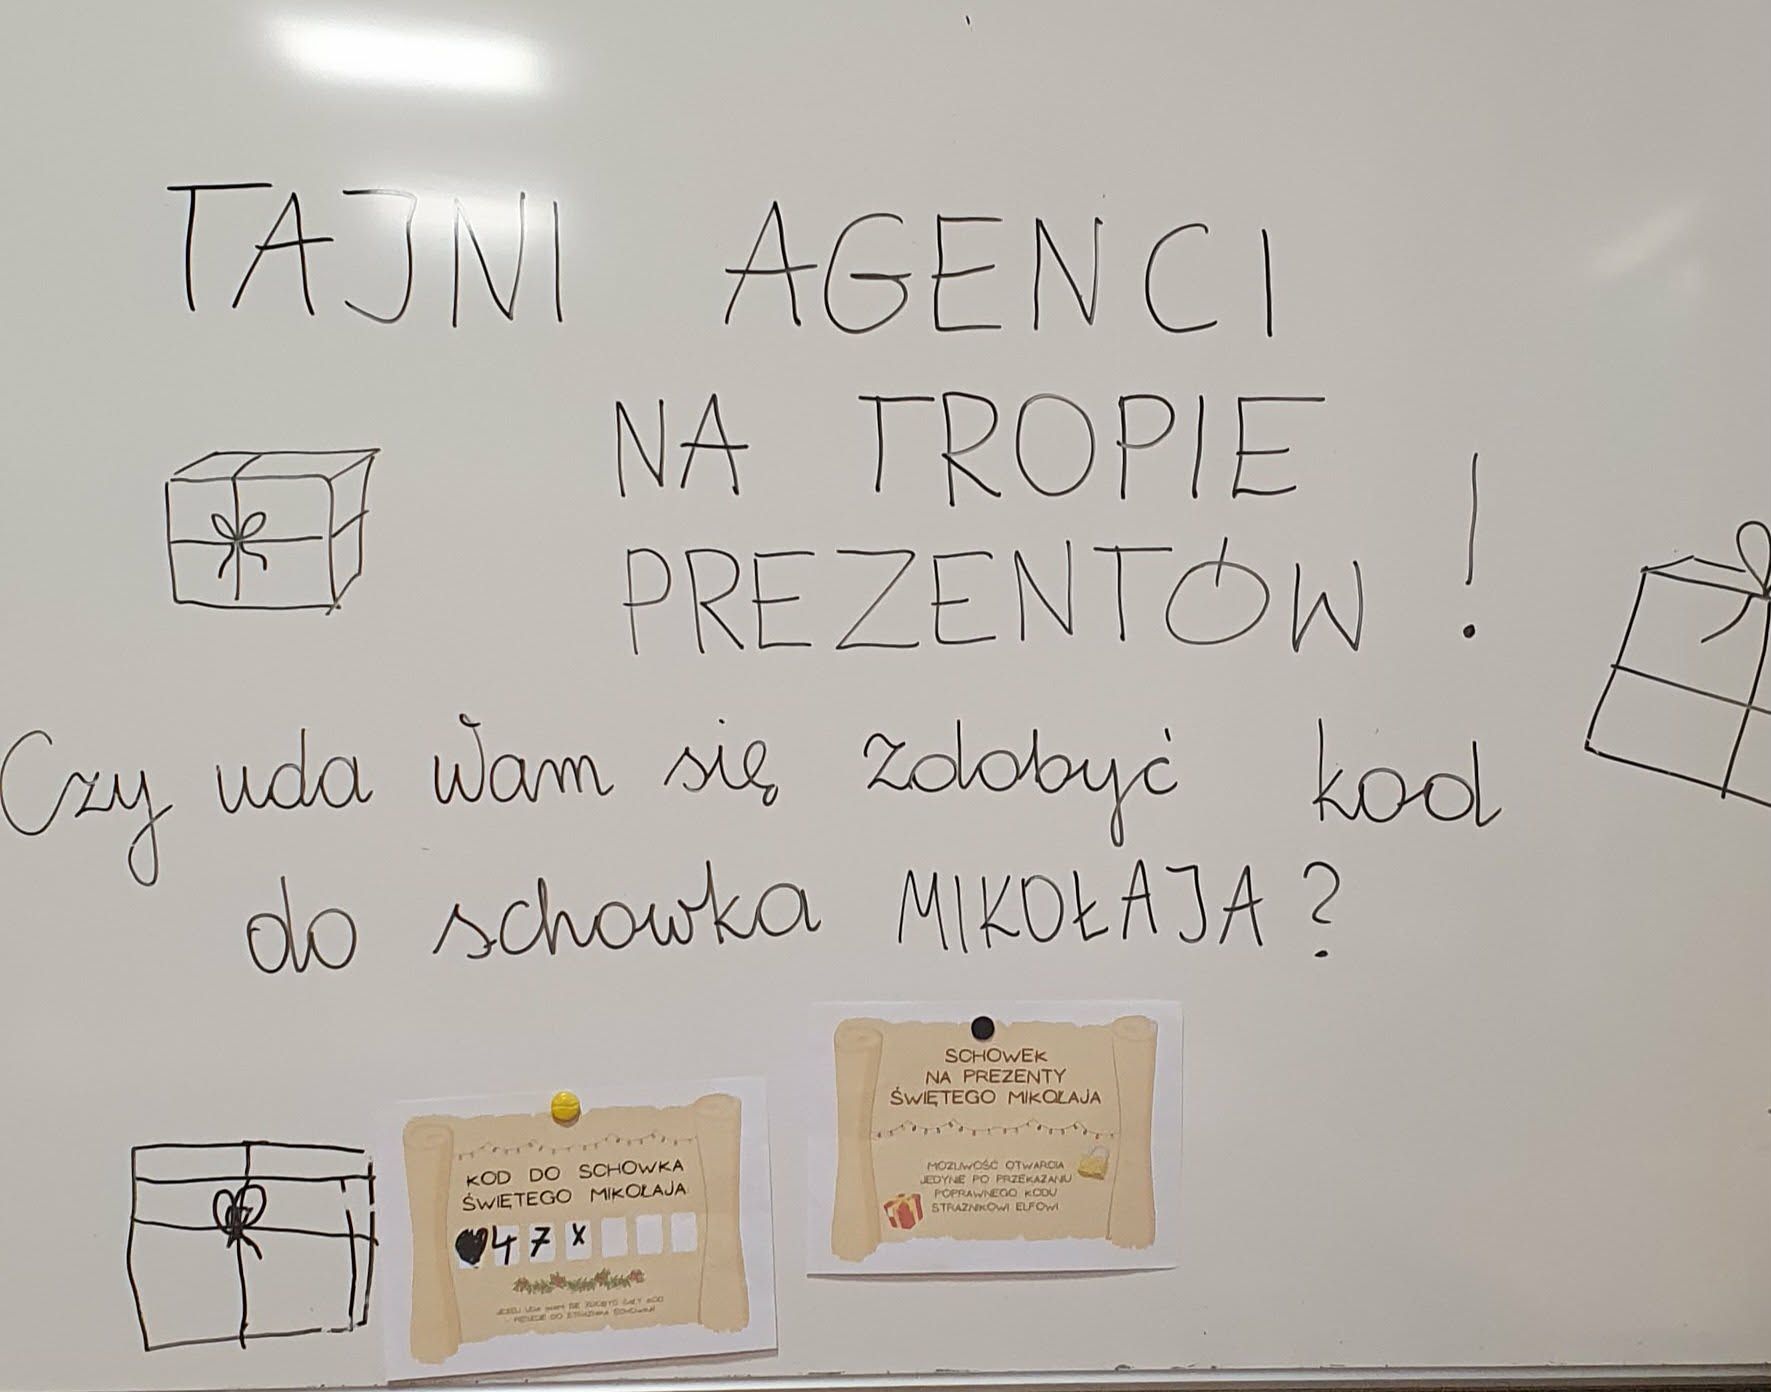 TAJNI AGENCI
NA TROPIE
PREZENTÓW !
Czy uda Wam się zdobyć kod
do schowka MIKOŁAJA ?
SCHOWEK
NA PREZENTY
ŚWIĘTEGO MIKOŁAJA
MOŻLIWOŚĆ OTWARCIA
JEDYNIE PO PRZEKAZANIU
POPRAWNEGO KODU
STRAŻNIKOWI ELFOWI
KOD DO SCHOWKA
ŚWIĘTEGO MIKOŁAJA
♥ 4 7 x
JEŻELI UDA WAM SIĘ ZDOBYĆ CAŁY KOD